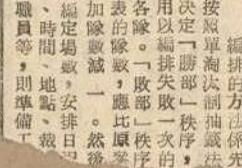 編排的方法係
按照單淘汰制抽籤法
決定「勝部」秩序，
用以編排失敗一次的
各隊。「敗部」秩序
表的隊數，應比原參
加隊數減一。然後
編定場數，安排日
、時間、地點、裁
職員等，則準備工